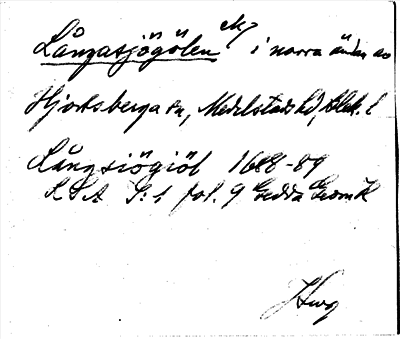 Långasjögölen i norra änden av
Hjortsberga sn, Medelstads hd, Blek. l
Långsiögiöl 1688-89
LSA S:1 fol. 9 Gedda Geom K